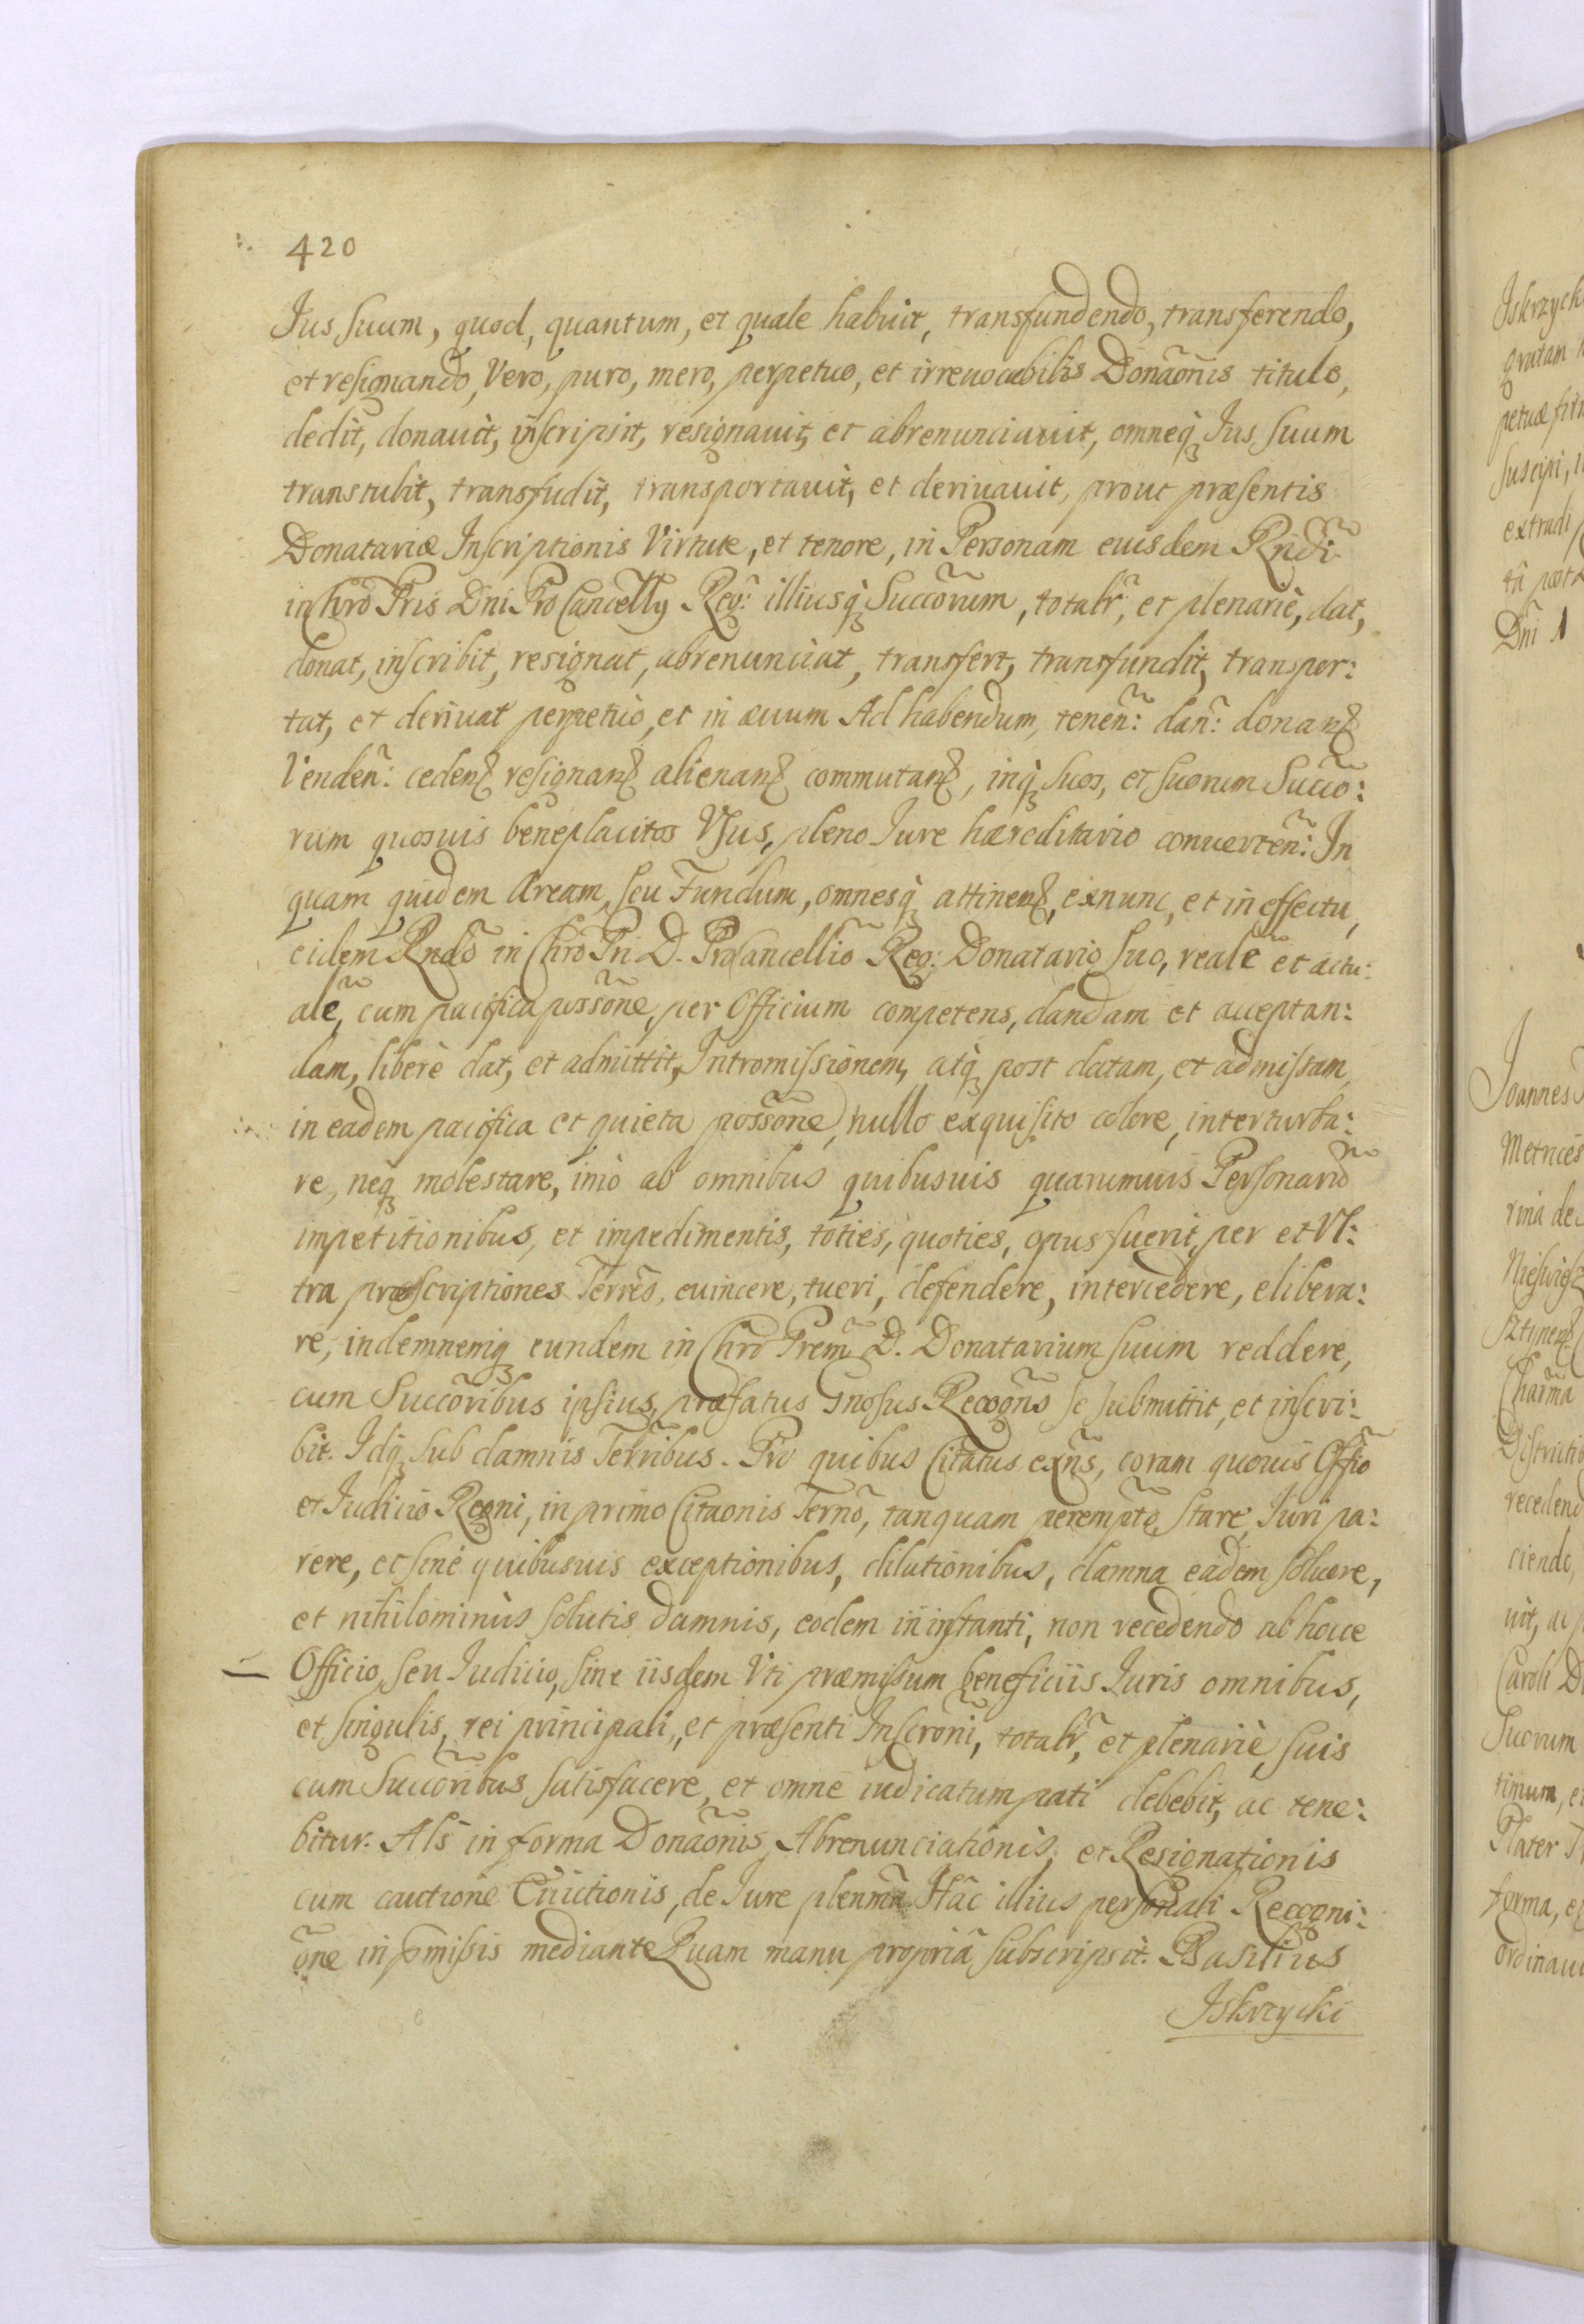 420
Jus suum, quod, quantum, et quale habuit, transfundendo, transferendo,
et resignando, Vero, puro, mero, perpetuo, et irreuocabilis Donãonis titulo,
dedit, donauit, inscripsit, resignauit, et abrenunciauit, omneq́ Ius suum
transtulit, transfudit, transportauit, et deriuauit, prout præsentis
Donatariæ Inscriptionis Virtute, et tenore, in Personam eiusdem Rñdi
in Chrõ Pris Dni ProCancelly Reg: illiusq́ Succõrum, totalr̃, et plenariè, dat,
donat, inscribit, resignat, abrenunciat, transfert, transfundit, transpor:
tat, et deriuat perpetuò, et in æuum Ad habendum, tenen̄: dan̄: donanꝫ
Venden̄: cedenꝫ resignanꝫ alienanꝫ commutanꝫ, inq́ suos, et suorum Succo:
rum quosuis beneplacitos Vsus, pleno Iure hæreditario conuerten̄: In
quam quidem Aream, seu Fundum, omnesq́ attinenꝫ, exnunc, et in effectu,
eidem Rndõ in Chrõ Pri D. ProCancelliõ Reg: Donatario suo, realẽ et actu:
alẽ, cum pacifica possõne, per Officium competens, dandam et acceptan:
dam, liberè dat, et admittit, Intromissionem, atq́ post datam, et admissam,
in eadem pacifica et quieta possõne, nullo exquisito colore, interturba:
re, neq́ molestare, imò ab omnibus quibusuis quarumuis Personarũ
impetitionibus, et impedimentis, toties, quoties, opus fuerit, per et Vl:
tra præscriptiones Terrẽs, euincere, tueri, defendere, intercedere, elibera:
re, indemnemq́ eundem in Chrõ Prem D. Donatarium suum reddere,
cum Succõribus ipsius, præfatus Gnosus Recogñs se submittit, et inscri:
bit. Idq́ sub damnis Terribus. Pro quibus Citatus exñs, coram quouis Offiõ
et Iudicio Regni, in primo Citaonis Ternõ, tanquam peremptõ, stare, Iuri pa:
rere, et sine quibusuis exceptionibus, dilationibus, damna eadem soluere,
et nihilominùs solutis damnis, eodem in instanti, non recedendo ab hocce
Officio, seu Iudicio, sine iisdem Vti præmissum beneficiis Iuris omnibus,
et singulis, rei principali, et præsenti Inscrõni, totalr̃, et plenariè, suis
cum Succõribus satisfacere, et omne iudicatum pati debebit, ac tene:
bitur. Als in forma Donãonis, Abrenunciationis, et Resignationis
cum cautione Euictionis, de Iure plenmã Hâc illius personali Recogni:
õne in p̃missis mediante Quam manu propriâ subscripsit. Basilius
Iskrzycki